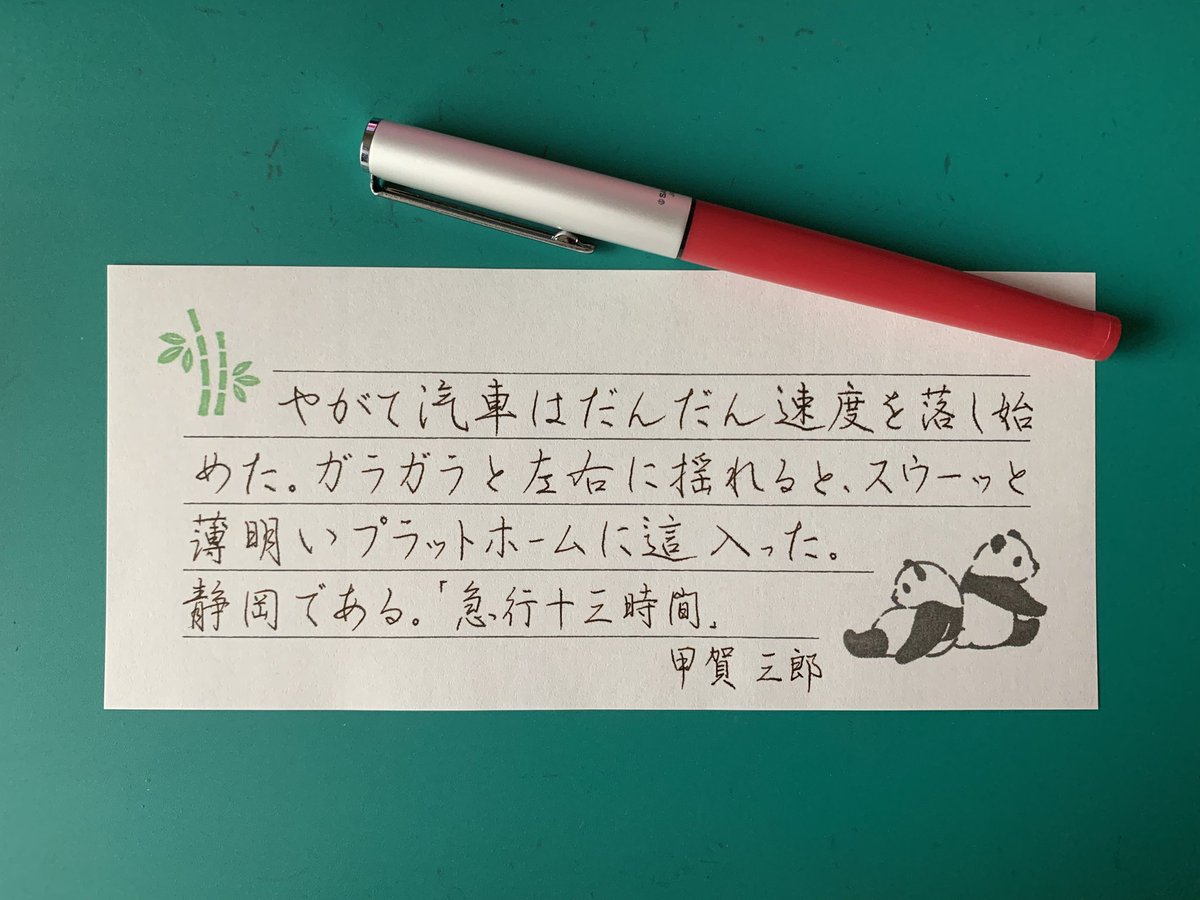 やがて汽車はだんだん速度を落し始
めた。ガラガラと左右に揺れると、スウーッと
薄明いプラットホームに這入った。
静岡である。「急行十三時間」
甲賀三郎